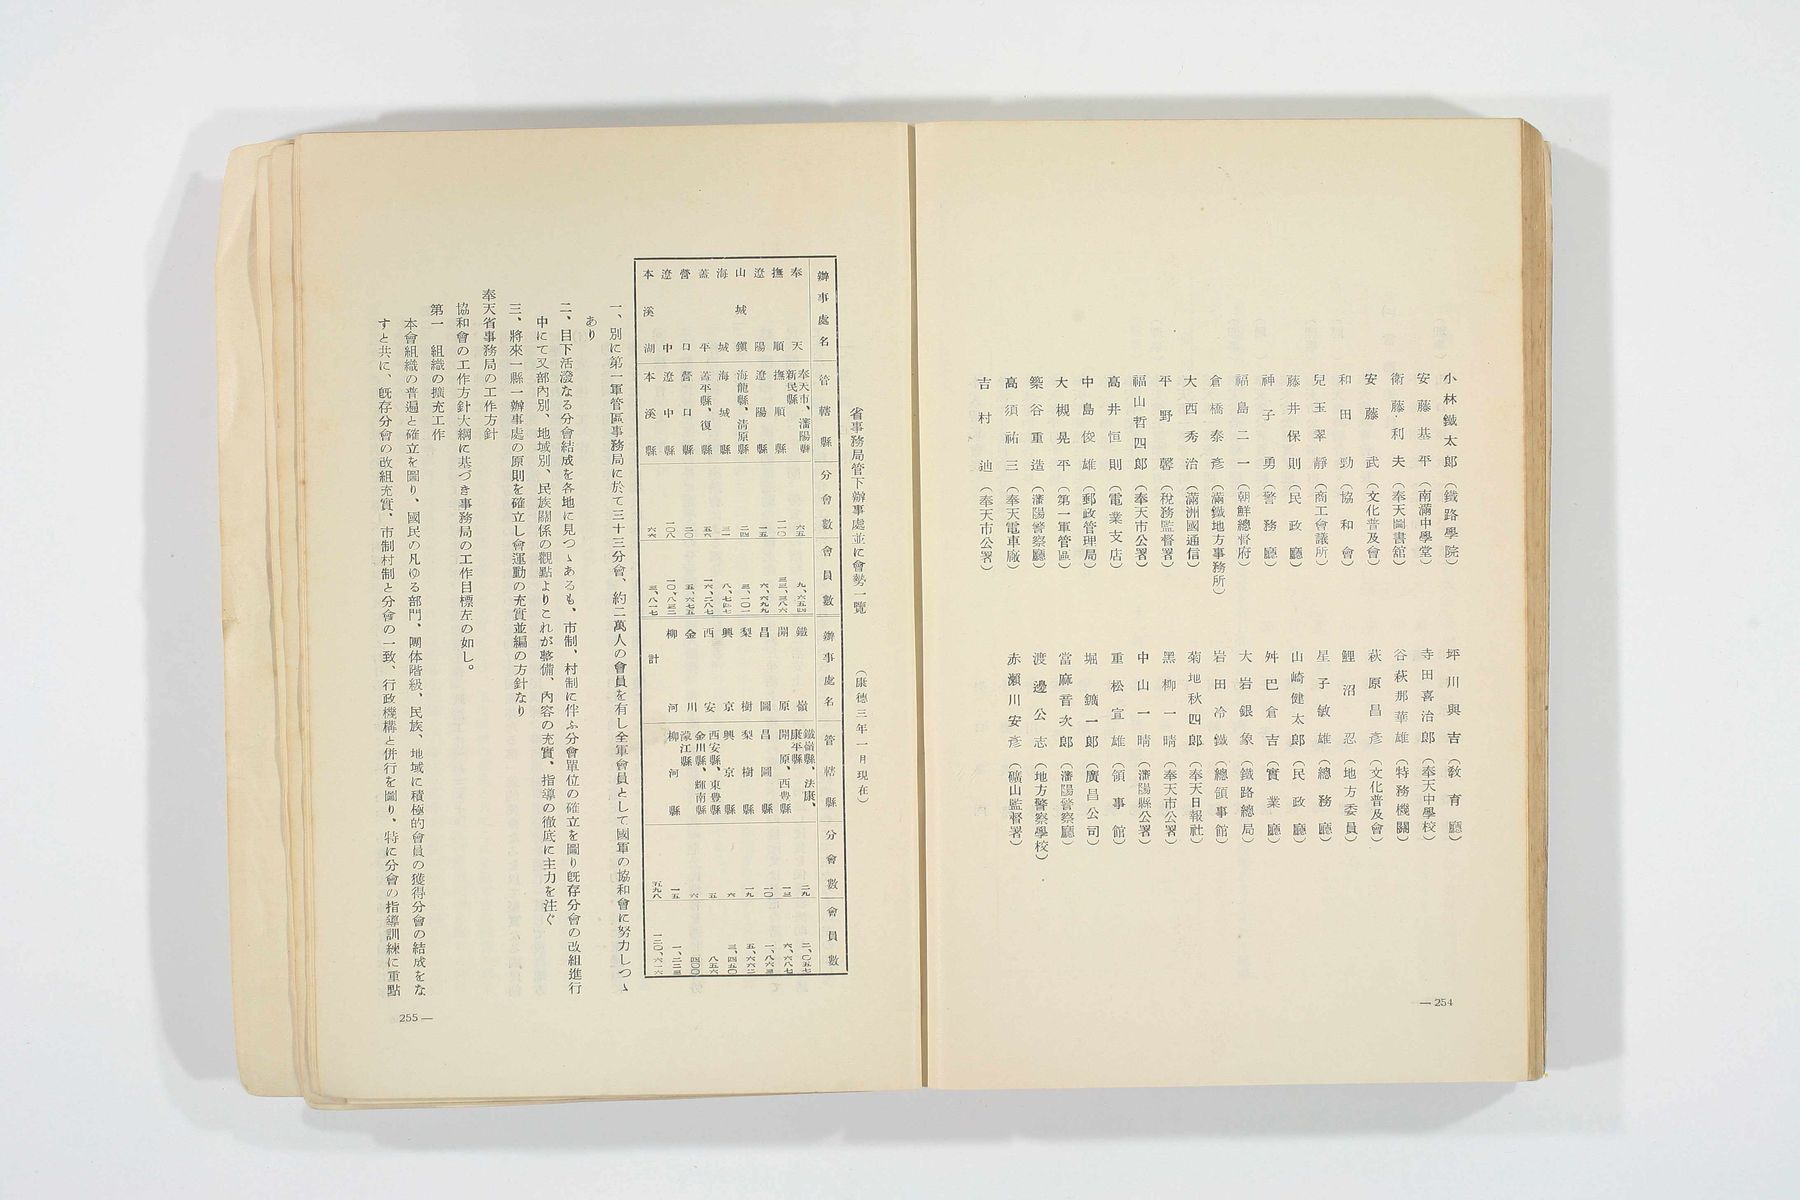 小林鐵太郎（鐵路學院）
安藤基平（南滿中學堂）
衛藤利夫（奉天圖書舘）
安藤武（文化普及會）
和田勁（協和會）
兒玉翠靜（商工會議所）
藤井保則（民政廳）
神子勇（警務廳）
福島二一（朝鮮總督府）
倉橋泰彥（滿鐵地方事務所）
大西秀治（滿洲國通信）
平野馨（稅務監督署）
福山哲四郎（奉天市公署）
高井恒則（電業支店）
中島俊雄（郵政管理局）
大槻晃平（第一軍管區）
築谷重造（瀋陽警察廳）
高須祐三（奉天電車廠）
吉村迪（奉天市公署）
坪川與吉（敎育廳）
寺田喜治郎（奉天中學校）
谷萩那華雄（特務機關）
萩原昌彥（文化普及會）
鯉沼忍（地方委員）
星子敏雄（總務廳）
山崎健太郎（民政廳）
舛巴倉吉（實業廳）
大岩銀象（鐵路總局）
岩田冷鐵（總領事館）
菊地秋四郎（奉天日報社）
黑柳一晴（奉天市公署）
中山一晴（瀋陽縣公署）
重松宣雄（領事館）
堀鐵一郎（廣昌公司）
當麻音次郎（瀋陽警察廳）
渡邊公志（地方警察學校）
赤瀨川安彥（礦山監督署）
— 254
省事務局管下辦事處並に會勢一覽（康德三年一月現在）
辦事處名 管轄縣 分會數 會員數
奉天 奉天市、瀋陽縣 新民縣 六五 九、六五四
撫順 撫順縣 一一〇 三三、三八六
遼陽 遼陽縣 一五 六、六九九
山城鎭 海龍縣、淸原縣 二四 三、一〇一
海城 海城縣 三一 八、七四七
蓋平 蓋平縣、復縣 五六 一六、二八七
營口 營口縣 二〇 五、六七五
遼中 遼中縣 一〇八 一〇、八三二
本溪湖 本溪縣 六六 三、八一七
辦事處名 管轄縣 分會數 會員數
鐵嶺 鐵嶺縣、法康、康平縣 二九 二、〇五七
開原 開原、西豊縣 一三 六、六八七
昌圖 昌圖縣 一〇 一、八六三
梨樹 梨樹縣 一九 五、六六二
興京 興京縣 六 三、四五〇
西安 西安縣、東豊縣 五 八五六
金川 金川縣、輝南縣 濛江縣 六 四〇〇
柳河 柳河縣 一五 一、二二三
計 五九八 一二〇、六一六
一、別に第一軍管區事務局に於て三十三分會、約二萬人の會員を有し全軍會員として國軍の協和會に努力しつゝ
あり
二、目下活潑なる分會結成を各地に見つゝあるも、市制、村制に伴ふ分會單位の確立を圖り既存分會の改組進行
中にて又部內別、地域別、民族關係の觀點よりこれが整備、內容の充實、指導の徹底に主力を注ぐ
三、將來一縣一辦事處の原則を確立し會運動の充實並編の方針なり
奉天省事務局の工作方針
協和會の工作方針大綱に基づき事務局の工作目標左の如し。
第一 組織の擴充工作
本會組織の普遍と確立を圖り、國民の凡ゆる部門、團体階級、民族、地域に積極的會員の獲得分會の結成をな
すと共に、既存分會の改組充實、市制村制と分會の一致、行政機構と併行を圖り、特に分會の指導訓練に重點
255 —